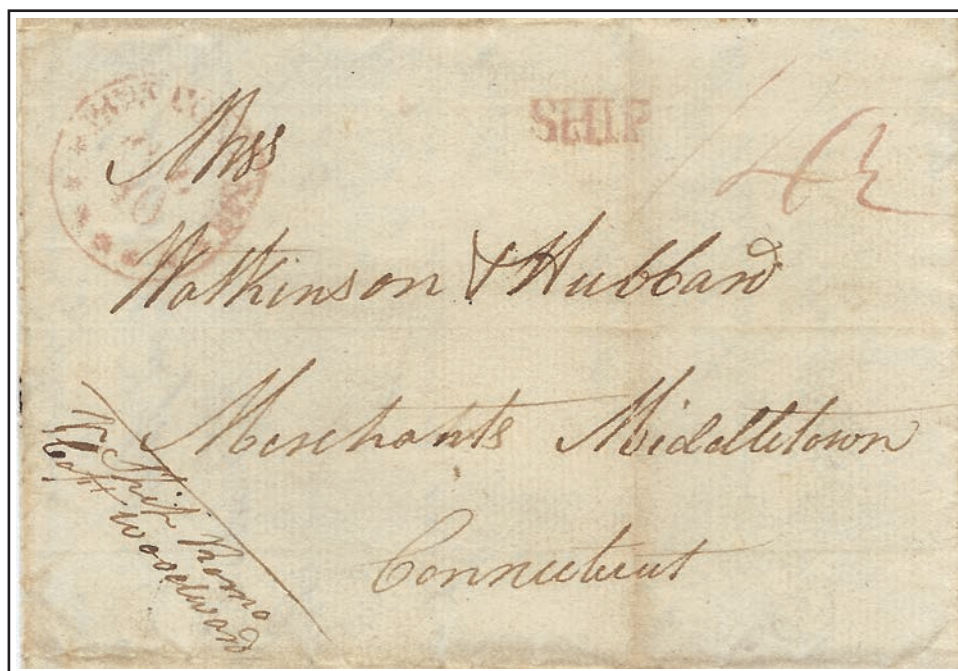 SHIP
Mess
Watkinson & Hubbard
Merchants Middletown
Connecticut
Ship
Capt Woodward